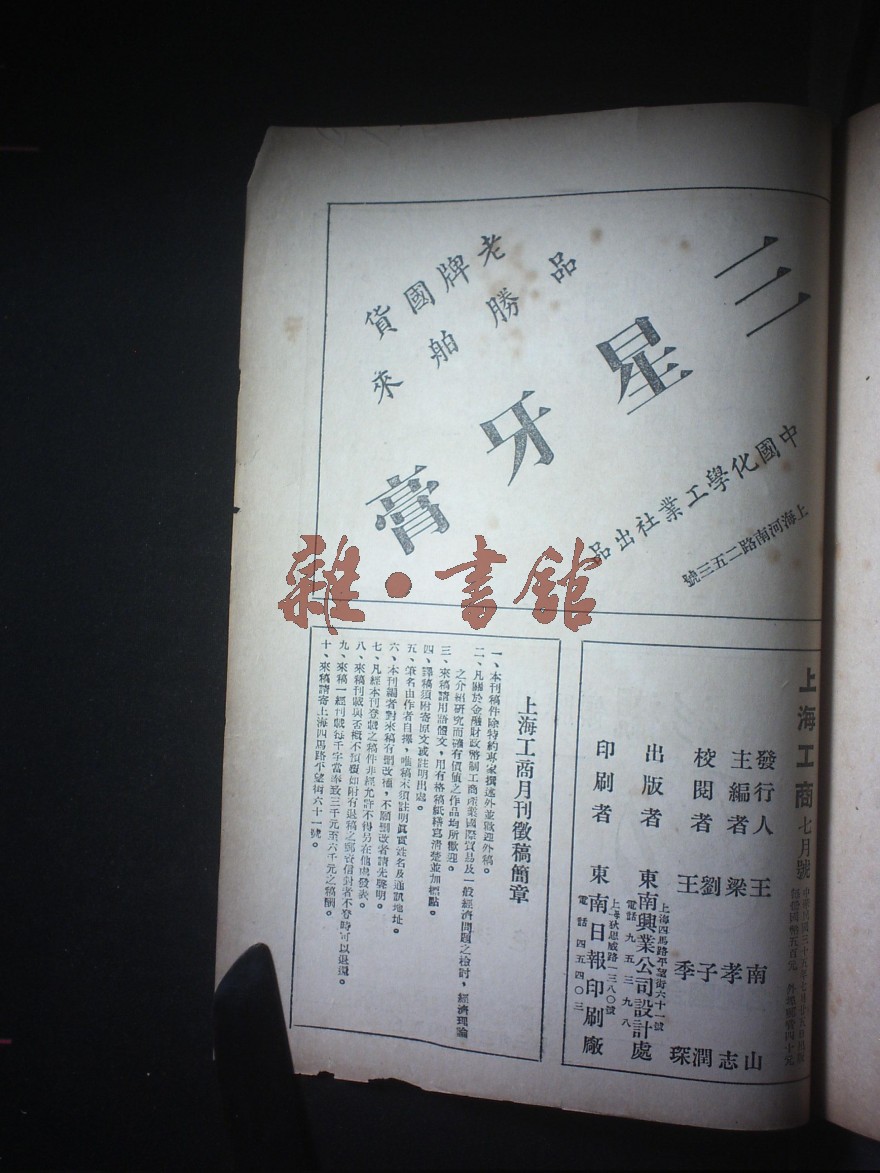 三星牙膏
老牌國貨
品勝舶來
中國化學工業社出品
上海河南路二五三號
雜·書館
上海工商 七月號
中華民國三十五年七月廿五日出版
每冊國幣五百元 外埠郵費四十元
發行人 王南山
主編者 梁孝志
校閱者 劉子潤
王季琛
出版者 東南興業公司設計處
上海四馬路平望街六十一號
電話 九五三九八
印刷者 東南日報印刷廠
上海狄思威路一三八〇號
電話 四五四〇三
上海工商月刊徵稿簡章
一、本刊稿件除特約專家撰述外並歡迎外稿。
二、凡關於金融財政幣制工商產業國際貿易及一般經濟問題之檢討,經濟理論
之介紹研究而確有價值之作品均所歡迎。
三、來稿請用語體文,用有格稿紙繕寫清楚並加標點。
四、譯稿須附寄原文或註明出處。
五、筆名由作者自擇,唯稿末須註明眞實姓名及通訊地址。
六、本刊編者對來稿有刪改權,不願刪改者請先聲明。
七、凡經本刊登載之稿件非經允許不得另在他處發表。
八、來稿刊載與否概不預覆如附有退稿之郵資信封者不登時可以退還。
九、來稿一經刊載每千字當奉致三千元至六千元之稿酬。
十、來稿請寄上海四馬路平望街六十一號。